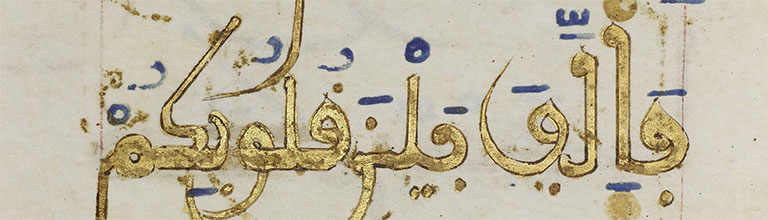 فَأَلَّفَ بَيْنَ قُلُوبِكُمْ